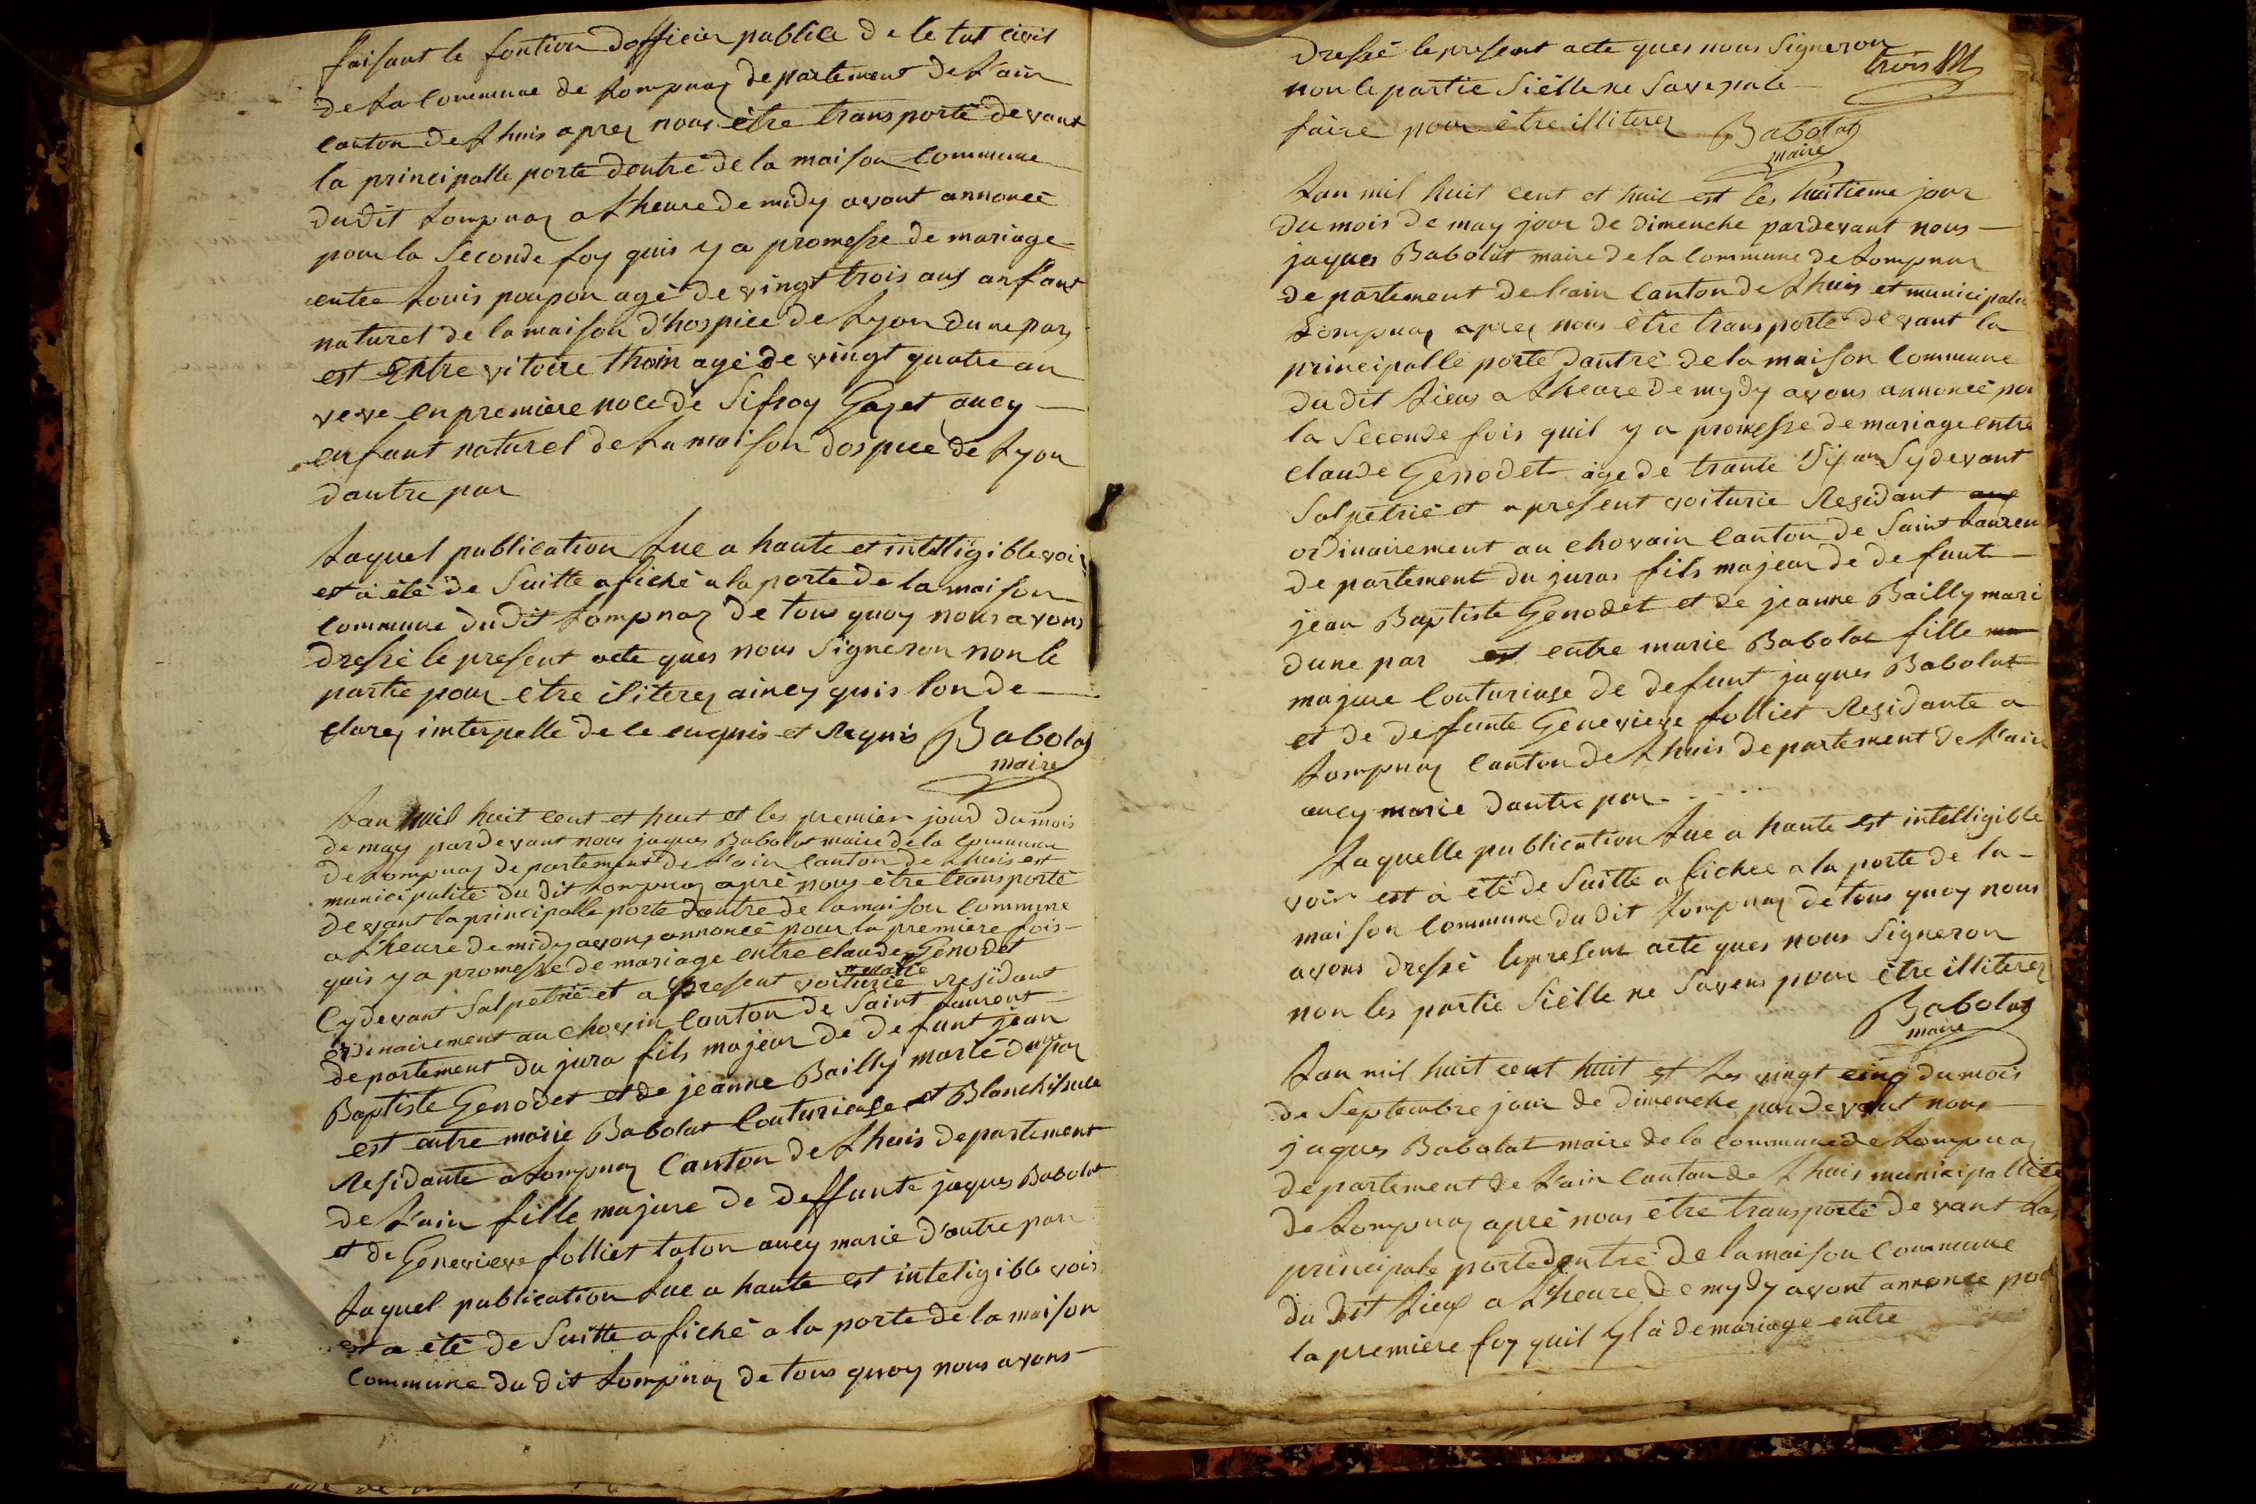 faisant le fontion dofficier publice de le tat civil
de La Commune de Lompnaz departement de L'ain
Canton de Lhuis aprez nous être transporté devant
la principalle porte dentré de la maison Commune
dudit Lompnaz a Lheure de midy avont annoncé
pour la Seconde foy quis y a promesse de mariage
entre Louis poupon agé de vingt trois ans anfant
naturel de la maison d'hospice de Lyon dune par
est Entre vitoire thoin agé de vingt quatre an
veve en premiere noce de Sifroy Gazet aucy
enfant naturel de La maison dospice de Lyon
dautre par
Laquel publication Lue a haute et intelligible voix
est à été de Suitte afiché a la porte de la maison
Commune du dit Lompnaz de tous quoy nous avons
dressé le present acte ques nous Signeron non le
partie pour être iliterez aincy quis lon de
clarez interpelle de ce enquis et Requis Babolaz
maire
Lan mil huit cent et huit et les premier jour du mois
de may pardevant nous jaques Babolat maire de la Commune
de Lompnaz departement de L'ain Canton de Lhuis est
municipalité du dit Lompnaz apré nous être transporté
devant la principalle porte dentre de la maison Commune
a Lheure de midy avons annoncé pour la premiere fois
quis y a promesse de mariage entre claude Genodet
Cydevant Salpetrié et a present voiturié Residant
ordinairement au chovin Canton de Saint Laurent
departement du jura fils majeur de defunt jean
Baptiste Genodet et de jeanne Bailly marié dune par
est entre marie Babolat Couturieuse et Blanchiseuse
Residante a Lompnaz Canton de Lhuis departement
de L'ain fille majure de deffunte jaques Babolat
et de Genevieve folliet taton aucy marié d'autre par
Laquel publication Lue a haute est inteligible voix
est a été de Suitte afiché a la porte de la maison
Commune du dit Lompnaz de tous quoy nous avons
dressé le present acte ques nous Signeron
trois
non le partie Siélle ne Save pale
faire pour être illiterez Babolaz
maire
Lan mil huit cent et huit est les huitieme jour
du mois de may jour de dimenche pardevant nous
jaques Babolat maire de la Commune de Lompnaz
departement de L'ain Canton de Lhuis et municipalité
Lompnaz aprez nous être transporté devant la
principalle porte dantré de la maison Commune
du dit Lieus a Lheure de mydy avons annoncé pou
la Seconde fois quil y a promesse de mariage entre
claude Genodet age de trante Six an Sydevant
Salpetrié et a present voiturié Residant
ordinairement au chovain Canton de Saint Lauren
departement du juras fils majeur de defunt
jean Baptiste Genodet et de jeanne Bailly mari
dune par est entre marie Babolat fille
majure Couturiuse de defunt jaques Babolat
et de deffunte Genevieve folliet Residante a
Lompnaz Canton de Lhuis departement de L'ain
aucy marié dautre par
Laquelle publication Lue a haute est intelligible
voix est à été de Suitte afichee a la porte de la
maison Commune du dit Lompnaz de tous quoy nous
avons dressé le present acte ques nous Signeron
non les partie Siélle ne Savens pour être illiterez
Babolaz
maire
Lan mil huit cent huit est Les vingt cinq du mois
de Septembre jour de dimenche pardevant nous
jaques Babolat maire de la Commune de Lompnaz
departement de L'ain Canton de Lhuis municipallité
de Lompnaz apré nous être transporté devant Las
principale porte dentré de la maison Commune
du dit Lieux a Lheure de mydy avont annonce pour
la premiere foy quil y là de mariage entre